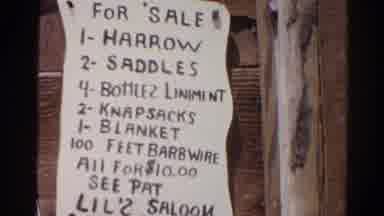 FOR SALE
1- HARROW
2- SADDLES
4- BOTTLEZ LINIMENT
2- KNAPSACKS
1- BLANKET
100 FEET BARBWIRE
All FOR $10.00
SEE PAT
LIL'Z SALOON